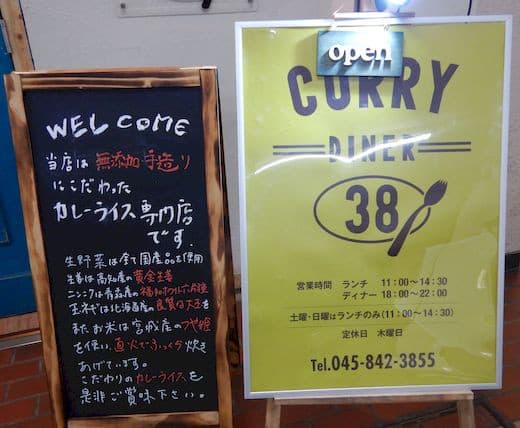 WELCOME
当店は無添加手造り
にこだわった
カレーライス専門店
です.
生野菜は全て国産品を使用
生姜は高知産の黄金生姜
ニンニクは青森産の福地ホワイト六片種
玉ネギは北海道産の良質な大玉を
またお米は宮城産のつや姫
を使い、直火でふっくら炊き
あげています。
こだわりのカレーライスを
是非ご賞味下さい。
open
CURRY
DINER
38
営業時間 ランチ 11:00〜14:30
ディナー 18:00〜22:00
土曜・日曜はランチのみ(11:00〜14:30)
定休日 木曜日
Tel.045-842-3855